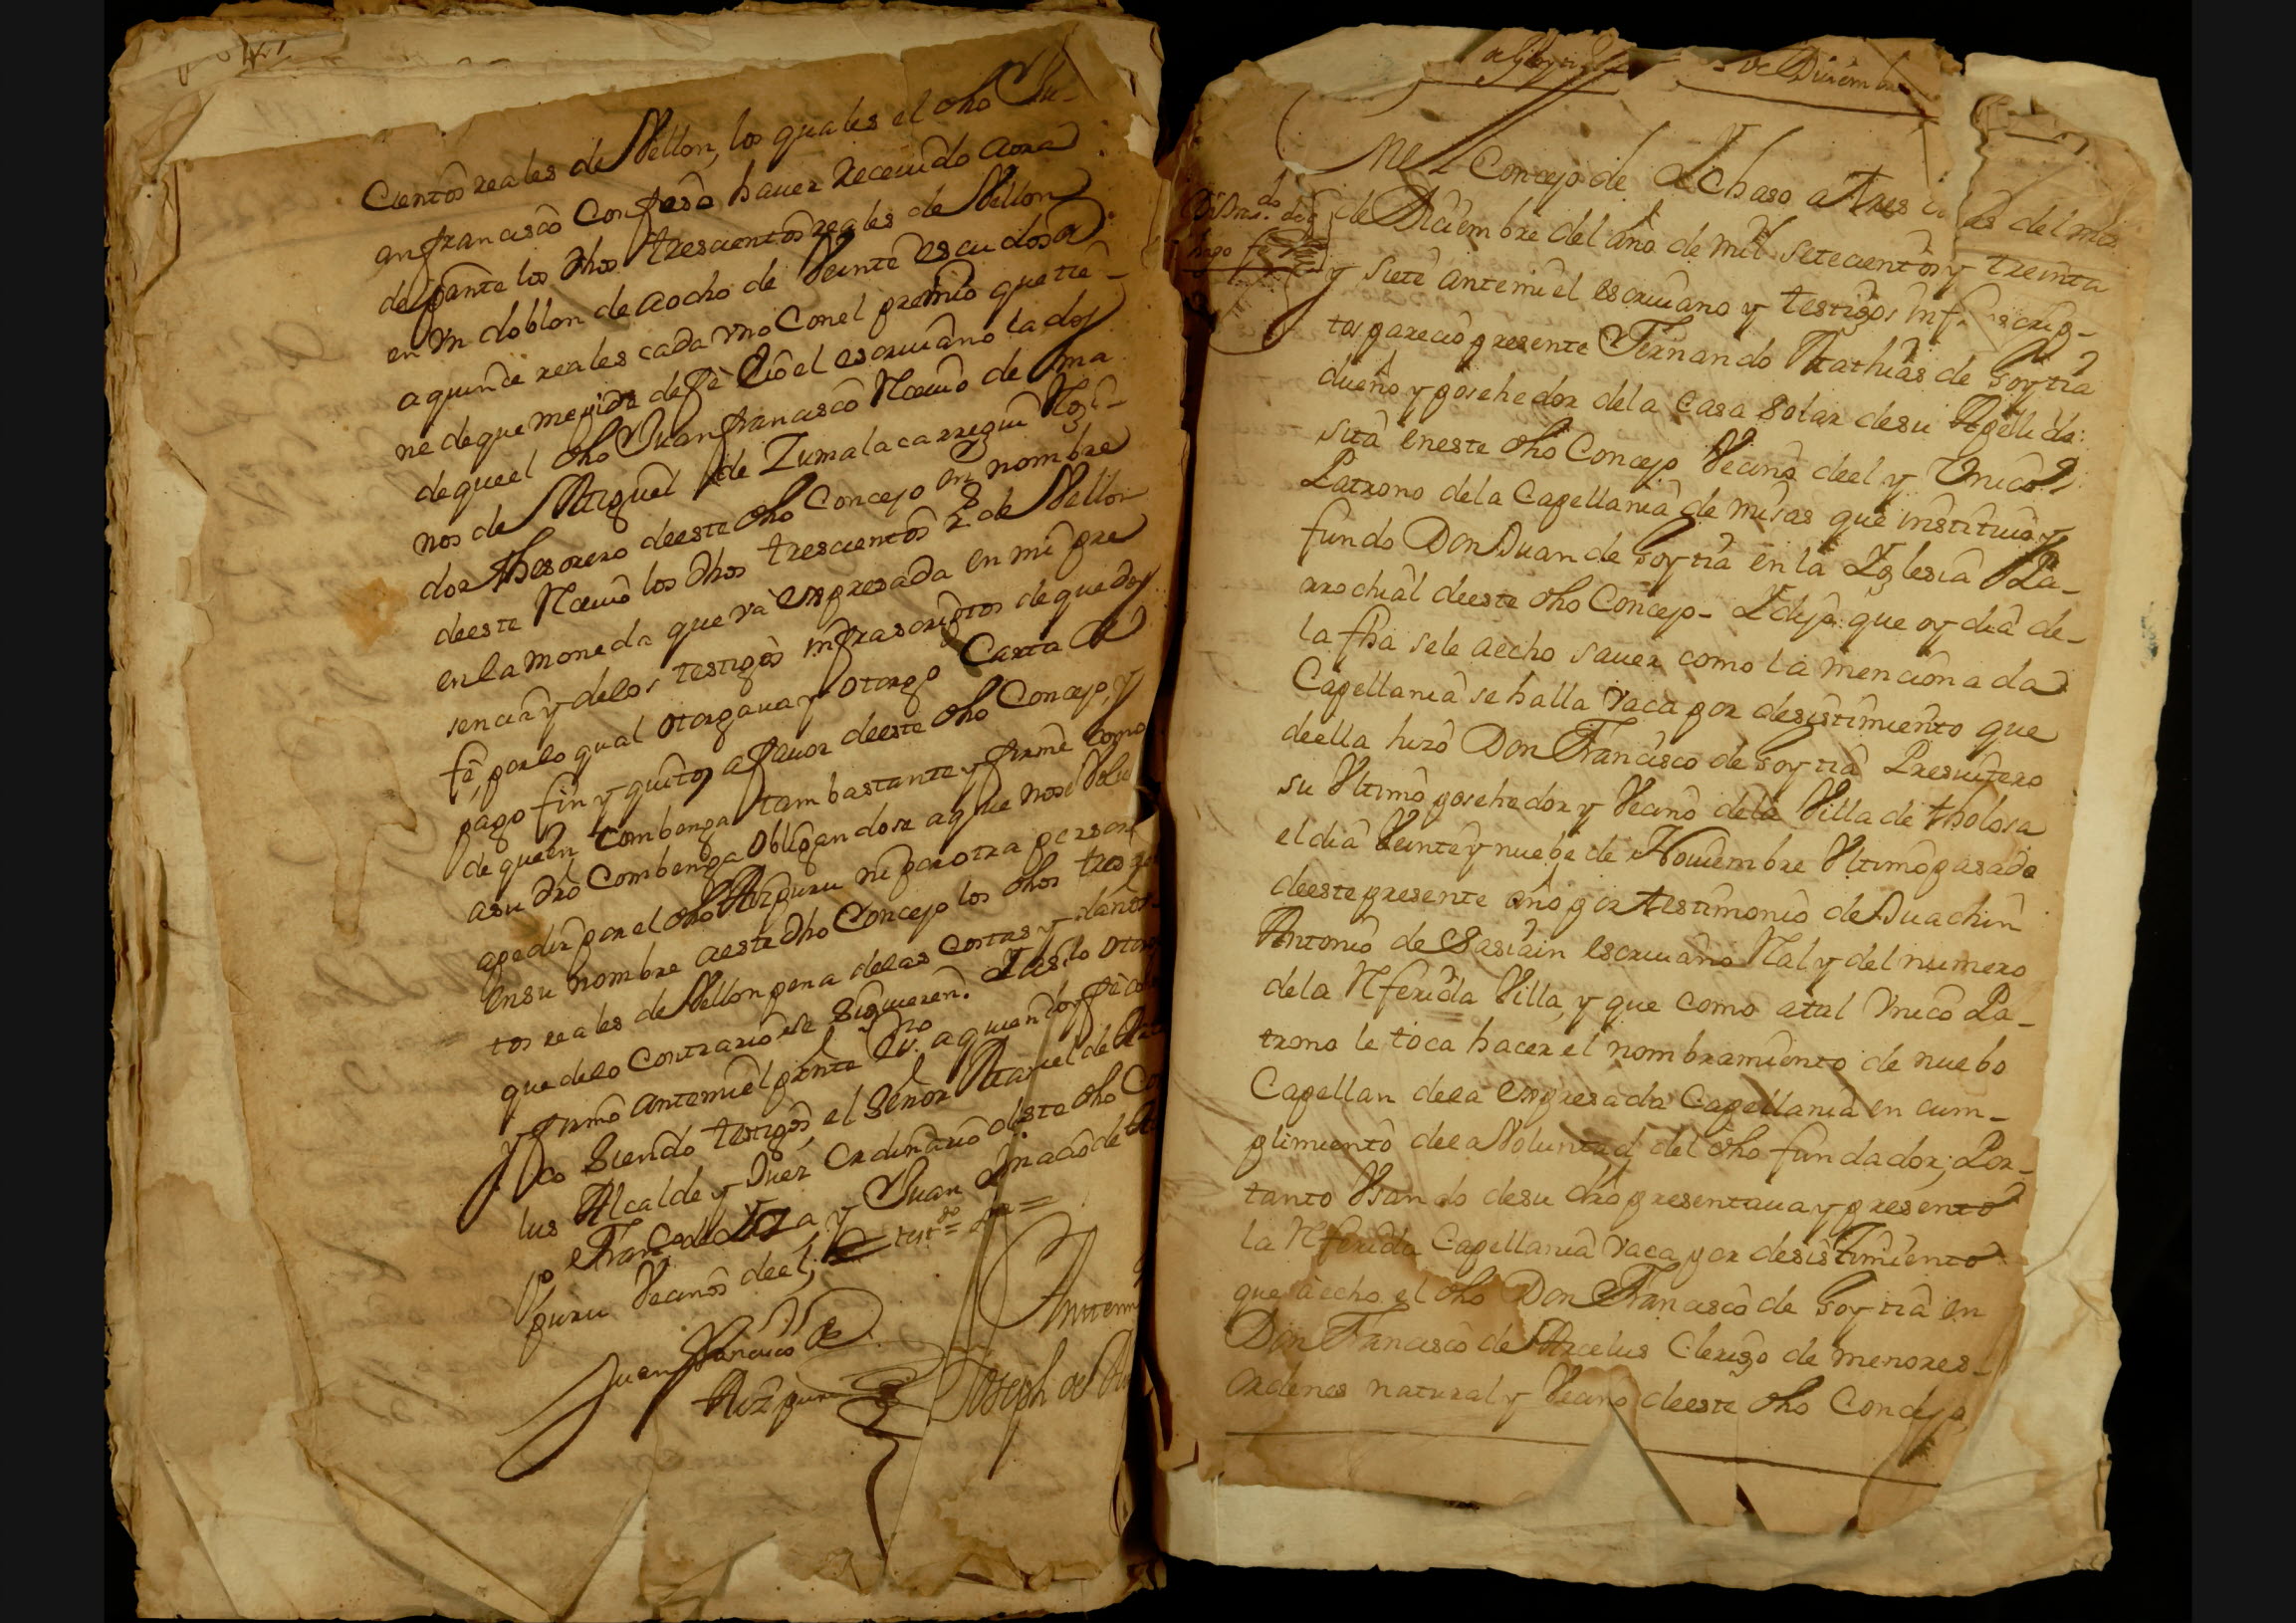 Cientos reales de Vellon, los quales el dho Ju-
an francisco Confeso hauer Receuido aora
depnte los dhos trescientos reales de Vellon
en vn doblon de aocho de Veinte escudos
aquinze reales cada vno Con el premio que tie-
ne de que me pidio de fe Lio el escriuano la doy
de que el dho Juan francisco Reciuio de ma
nos de Miguel de Zumalacarregui Regi-
dor thesorero deeste dho Concejo en nombre
deeste Reciuio los dhos trescientos Rs de Vellon
en la moneda que va expresada en mi pre
sencia y delos testigos infrascriptos de que doy
fe, por lo qual otorgaua y otorgo Carta de
pago fin y quito a fauor deeste dho Concejo, y
de quien Combenga tam bastante y firme como
asu dro Combenga obligandose aque nose Volu
apedir por el dho Aizpuru ni por otra person
en su nombre aeste dho Concejo los dhos tres
tos reales de Vellon pena delas Costas y daños
que delo Contrario se siguieren. Y asi lo otorg
y firmo antemi el prnte Esno aquien doy fe co
co Siendo testigos el Señor Manuel de Arce
lus Alcalde y Juez ordinario deste dho Co
Franco de y Juan Ignacio de Aiz
puru Vecinos deel; testdo
Juan Francisco de Antemi
Aizpuru Joseph de
de Diziem
En el Concejo de Ychaso a tres dias del mes
de Diciembre del año de mil setecientos y treinta
hago fe
y siete antemi el escriuano y testigos infrascrip-
tos parecio presente Fernando Mathias de Goytia
dueño y posehedor dela Casa Solar de su Apellido
sita en este dho Concejo Vecino deel y Vnico
Patrono dela Capellania de misas que instituio y
fundo Don Juan de Goytia en la Yglesia Pa-
rrochial deeste dho Concejo - Y dijo que oy dia de-
la fha sele aecho sauer como la mencionada
Capellania se halla Vaca por desistimiento que
deella hizo Don Francisco de Goytia Presuitero
su Vltimo posehedor y Vecino dela Villa de tholosa
el dia Veinte y nuebe de Nouiembre Vltimo pasado
deeste presente año por testimonio de Juachin
Antonio de Sasiain escriuano Ral y del numero
dela Rferida Villa, y que como atal Vnico Pa-
trono le toca hacer el nombramiento de nuebo
Capellan dela expresada Capellania en cum-
plimiento dela Voluntad del dho fundador; Por-
tanto Vsando desu dro presentaua y presento
la Rferida Capellania Vaca por desistimiento
que aecho el dho Don Francisco de Goytia en
Don Francisco de Arcelus Clerigo de menores-
ordenes natural y Vecino deeste dho Concejo,